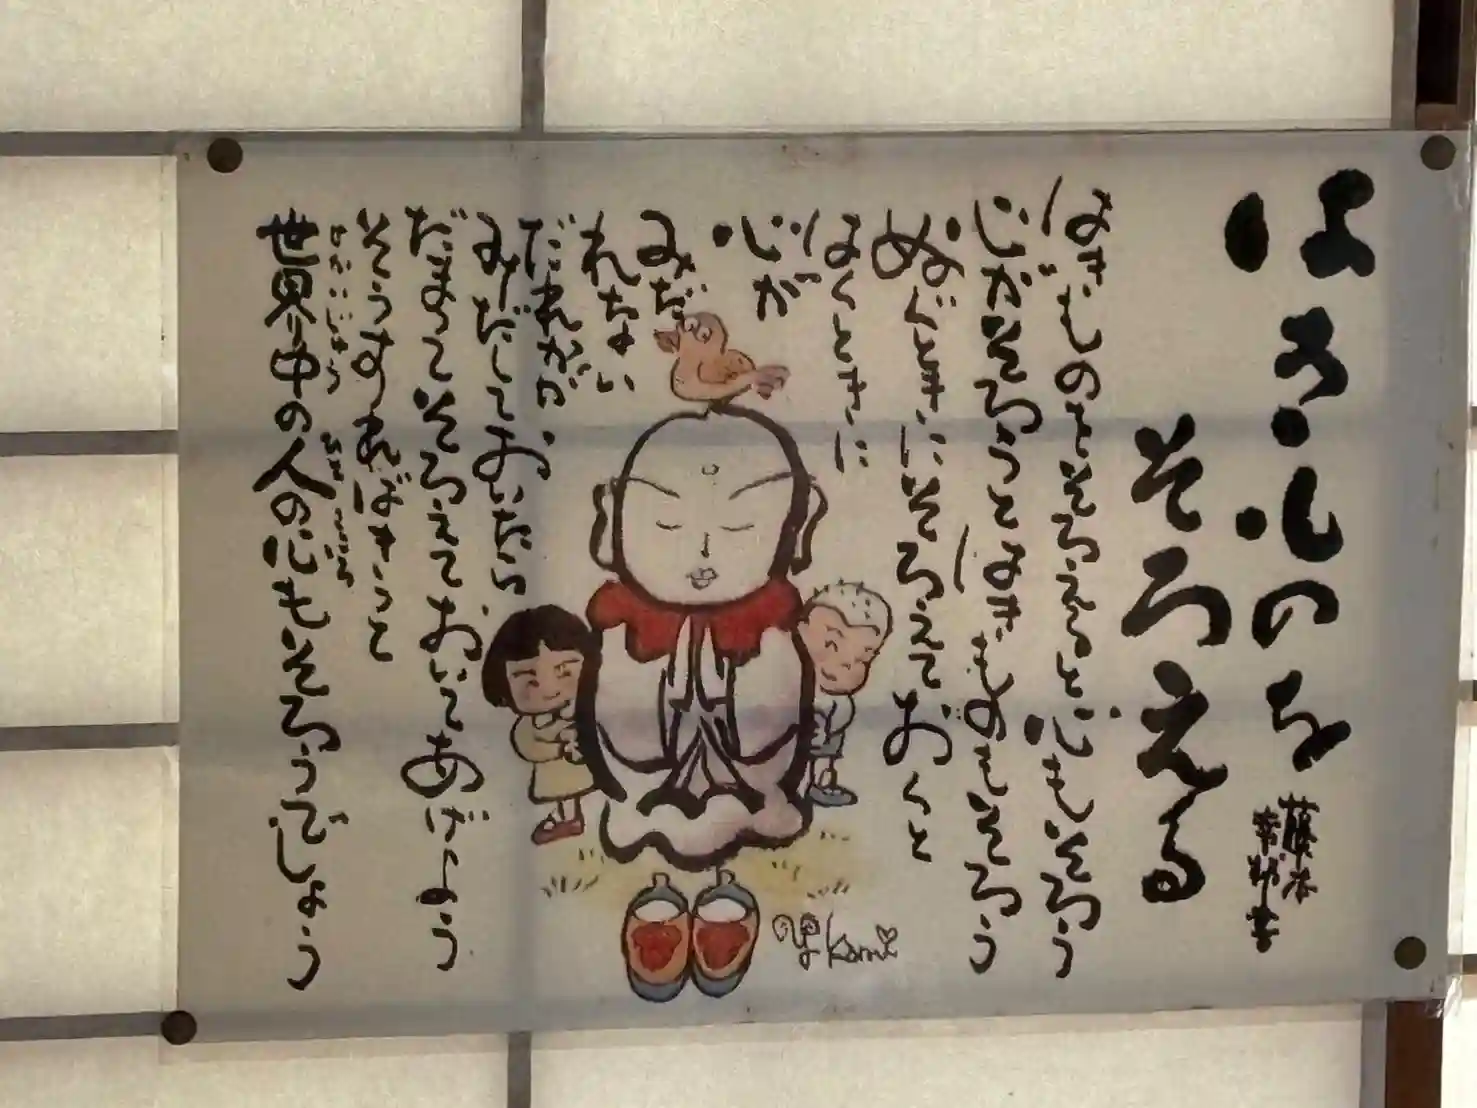 はきものを
そろえる
藤本幸邦書
はきものをそろえると心もそろう
心がそろうとはきものもそろう
ぬぐときにそろえておくと
はくときに
心が
みだ
れない
だれかが
みだしておいたら
だまってそろえておいてあげよう
そうすればきっと
せかいじゅう ひと こころ
世界中の人の心もそろうでしょう